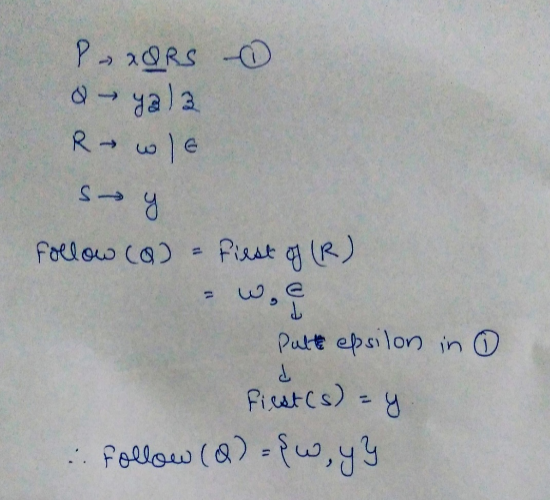 P → xQRS —①
Q → yz|z
R → w|∈
S → y
Follow (Q) = First of (R)
= w, ∈
↓
Put epsilon in ①
↓
First(S) = y
∴ Follow (Q) = {w, y}